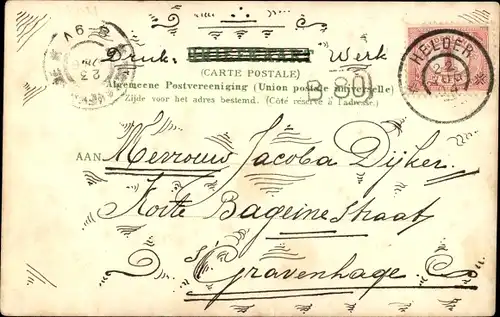 Druk- Werk
(CARTE POSTALE)
Algemeene Postvereeniging (Union postale universelle)
Zijde voor het adres bestemd. (Côté réservé à l'adresse.)
HELDER
AAN Mevrouw Jacoba Dijker.
Korte Bageinestraat
s' Gravenhage.